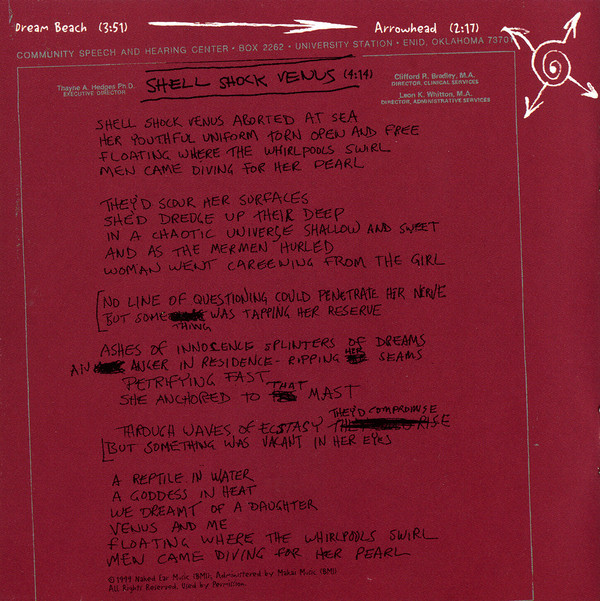 Dream Beach (3:51) Arrowhead (2:17)
COMMUNITY SPEECH AND HEARING CENTER • BOX 2262 • UNIVERSITY STATION • ENID, OKLAHOMA 73701
Thayne A. Hedges Ph.D.
EXECUTIVE DIRECTOR
SHELL SHOCK VENUS (4:14)
Clifford R. Bradley, M.A.
DIRECTOR, CLINICAL SERVICES
Leon K. Whitton, M.A.
DIRECTOR, ADMINISTRATIVE SERVICES
SHELL SHOCK VENUS ABORTED AT SEA
HER YOUTHFUL UNIFORM TORN OPEN AND FREE
FLOATING WHERE THE WHIRLPOOLS SWIRL
MEN CAME DIVING FOR HER PEARL
THEY'D SCOUR HER SURFACES
SHE'D DREDGE UP THEIR DEEP
IN A CHAOTIC UNIVERSE SHALLOW AND SWEET
AND AS THE MERMEN HURLED
WOMAN WENT CAREENING FROM THE GIRL
NO LINE OF QUESTIONING COULD PENETRATE HER NERVE
BUT SOME WAS TAPPING HER RESERVE
THING
ASHES OF INNOCENCE SPLINTERS OF DREAMS
AN ANGER IN RESIDENCE - RIPPING HER SEAMS
PETRIFYING FAST
SHE ANCHORED TO THAT MAST
THROUGH WAVES OF ECSTASY THEY'D COMPROMISE RISE
BUT SOMETHING WAS VACANT IN HER EYES
A REPTILE IN WATER
A GODDESS IN HEAT
WE DREAMT OF A DAUGHTER
VENUS AND ME
FLOATING WHERE THE WHIRLPOOLS SWIRL
MEN CAME DIVING FOR HER PEARL
© 1999 Naked Ear Music (BMI), Administered by Makai Music (BMI)
All Rights Reserved. Used by Permission.